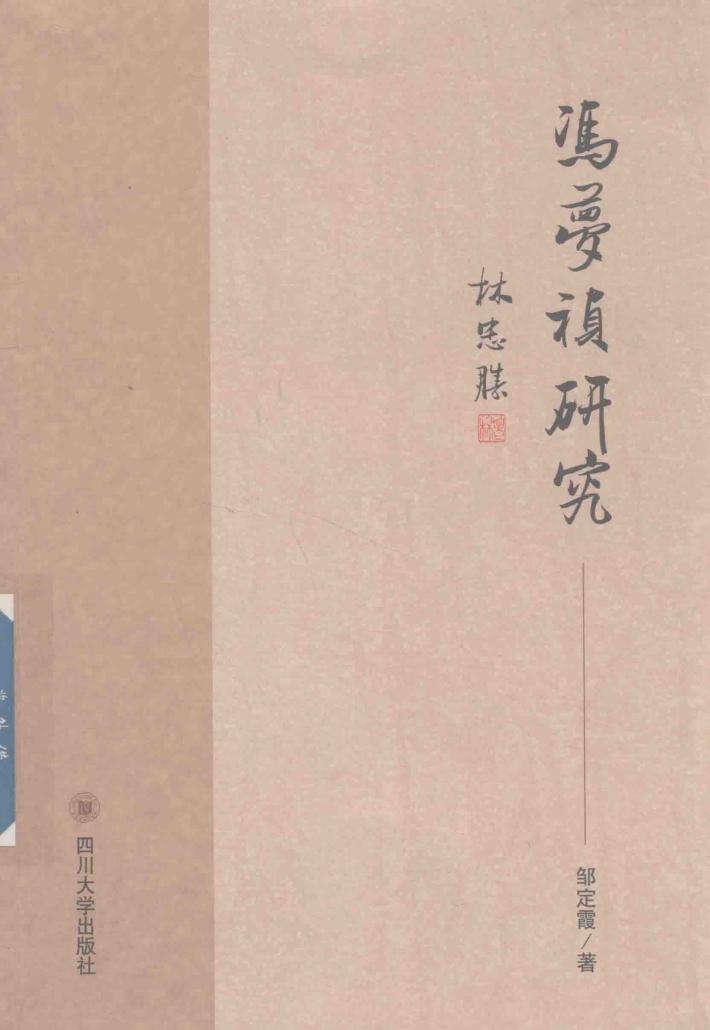 馮夢禎研究
林忠勝
邹定霞/著
四川大学出版社